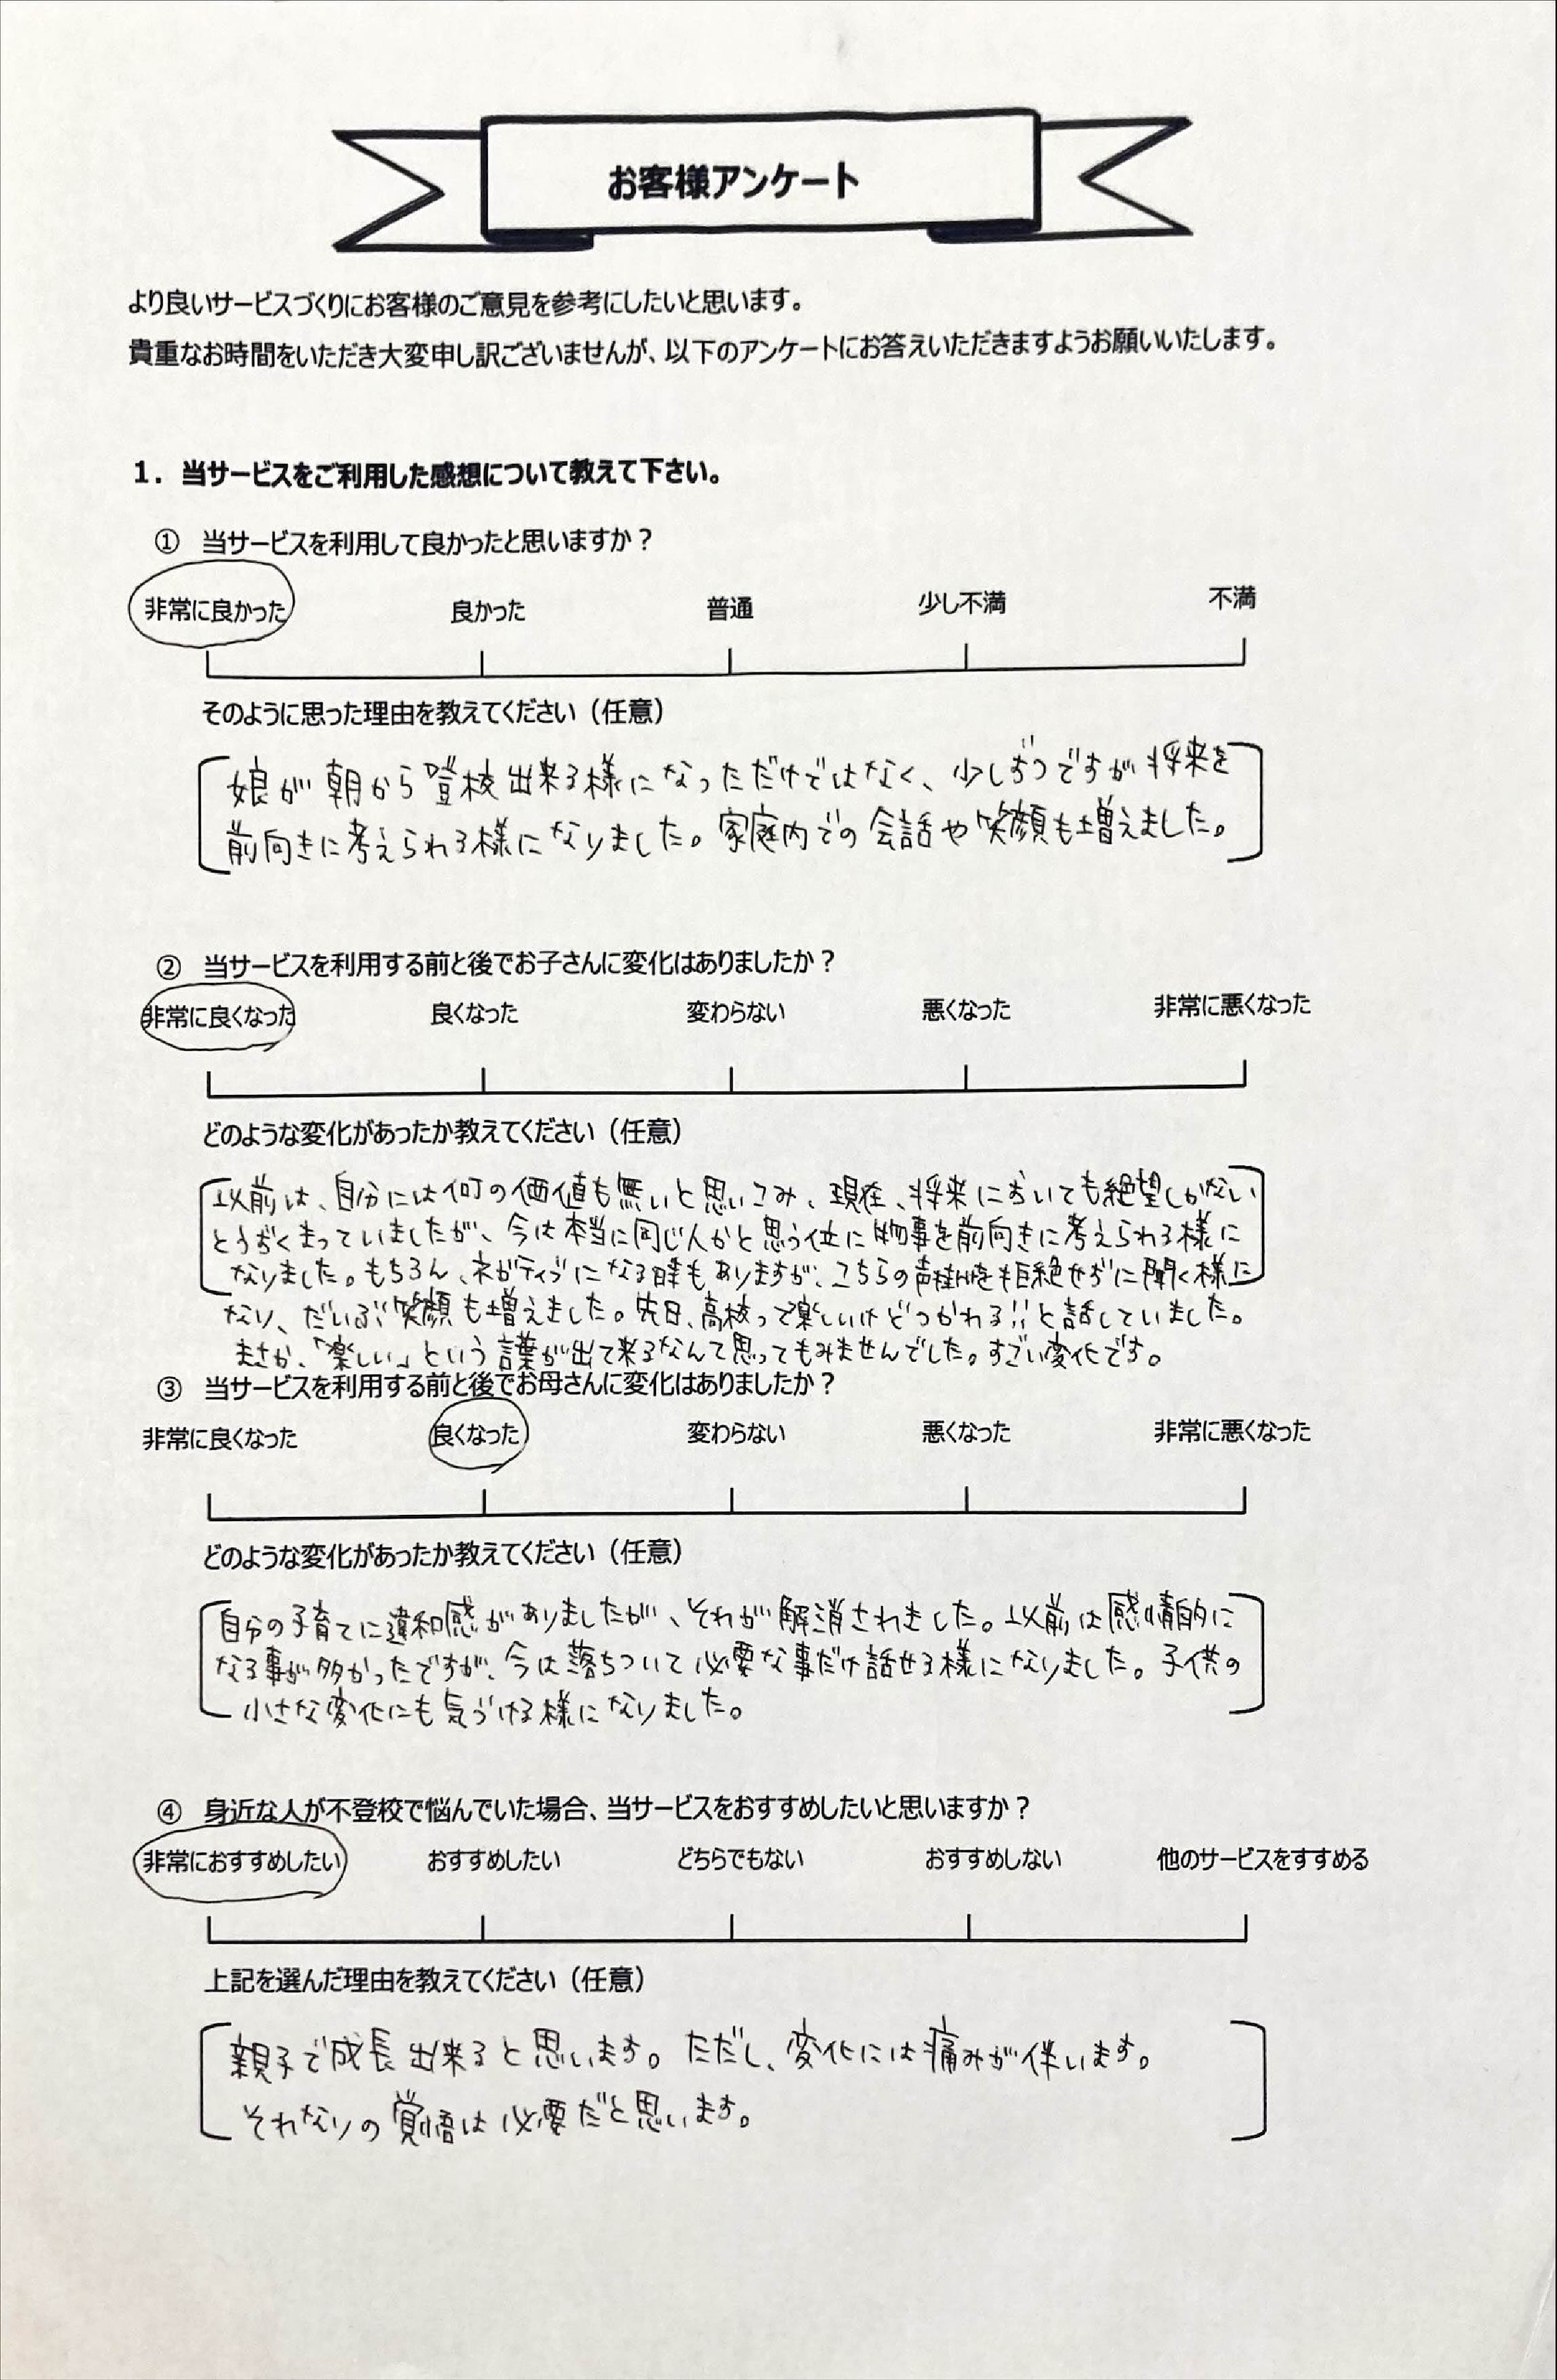 お客様アンケート
より良いサービスづくりにお客様のご意見を参考にしたいと思います。
貴重なお時間をいただき大変申し訳ございませんが、以下のアンケートにお答えいただきますようお願いいたします。
1．当サービスをご利用した感想について教えて下さい。
① 当サービスを利用して良かったと思いますか？
非常に良かった 良かった 普通 少し不満 不満
そのように思った理由を教えてください（任意）
娘が朝から登校出来る様になっただけではなく、少しずつですが将来を
前向きに考えられる様になりました。家庭内での会話や笑顔も増えました。
② 当サービスを利用する前と後でお子さんに変化はありましたか？
非常に良くなった 良くなった 変わらない 悪くなった 非常に悪くなった
どのような変化があったか教えてください（任意）
以前は、自分には何の価値も無いと思いこみ、現在、将来においても絶望しかない
とうずくまっていましたが、今は本当に同じ人かと思う位に物事を前向きに考えられる様に
なりました。もちろん、ネガティブになる時もありますが、こちらの声掛けを拒絶せずに聞く様に
なり、だいぶ笑顔も増えました。先日、高校って楽しいけどつかれる!!と話していました。
まさか、「楽しい」という言葉が出て来るなんて思ってもみませんでした。すごい変化です。
③ 当サービスを利用する前と後でお母さんに変化はありましたか？
非常に良くなった 良くなった 変わらない 悪くなった 非常に悪くなった
どのような変化があったか教えてください（任意）
自分の子育てに違和感がありましたが、それが解消されました。以前は感情的に
なる事が多かったですが、今は落ちついて必要な事だけ話せる様になりました。子供の
小さな変化にも気づける様になりました。
④ 身近な人が不登校で悩んでいた場合、当サービスをおすすめしたいと思いますか？
非常におすすめしたい おすすめしたい どちらでもない おすすめしない 他のサービスをすすめる
上記を選んだ理由を教えてください（任意）
親子で成長出来ると思います。ただし、変化には痛みが伴います。
それなりの覚悟は必要だと思います。